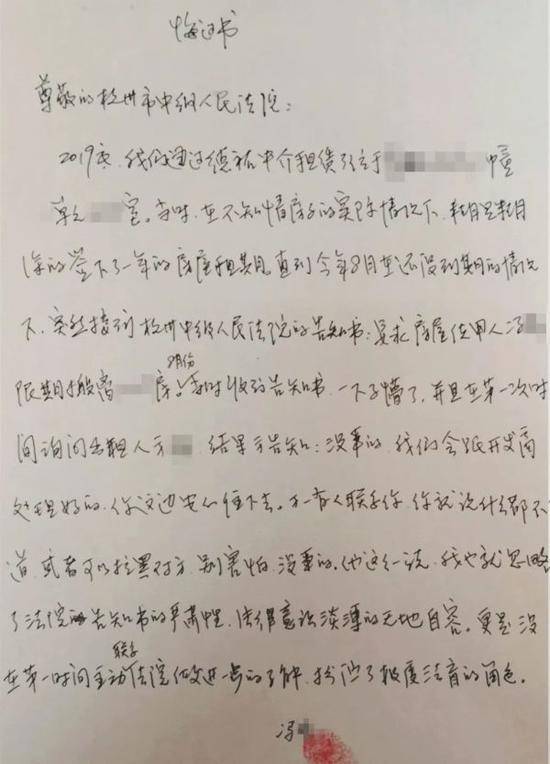 悔过书
尊敬的杭州市中级人民法院:
2019年,我们通过德祐中介租赁了位于 幢
单元 室。当时,在不知情房子的实际情况下,
的签下了一年的房屋租期,直到今年8月在还没到期的情况
下,突然接到杭州中级人民法院的告知书:要求房屋使用人冯
限期搬离 房。当时收到告知书,一下子懵了,并且在第一次时
月份
间询问出租人方 ,结果方告知:没事的,我们会跟开发商
处理好的,你这边安心住下去。万一有人联系你,你就说什么都不
道,或者可以拉黑对方,别害怕,没事的。他这一说,我也就忽略
了法院的告知书的严肃性,法律意识淡薄的无地自容。更是没
在第一时间主动联系法院做进一步的了解,扮演了极度法盲的角色。
冯